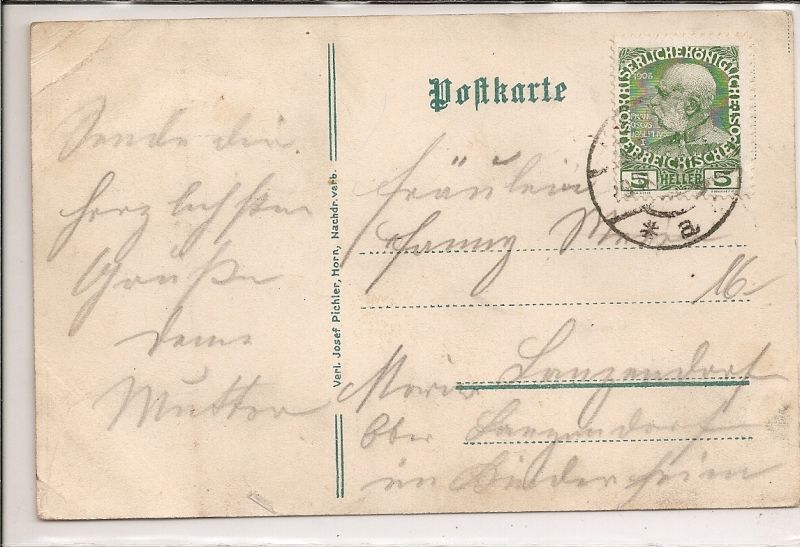 Postkarte
KAISERLICHE KÖNIGLICHE
ÖSTERREICHISCHE
1908
5 HELLER 5
* a
Sende dir
herzlichsten
Grüße
deine
Mutter
Verl. Josef Pichler, Horn, Nachdr. verb.
Fräulein
Fanny
16
Maria Lanzendorf
Ober Lanzendorf
im Kinderheim